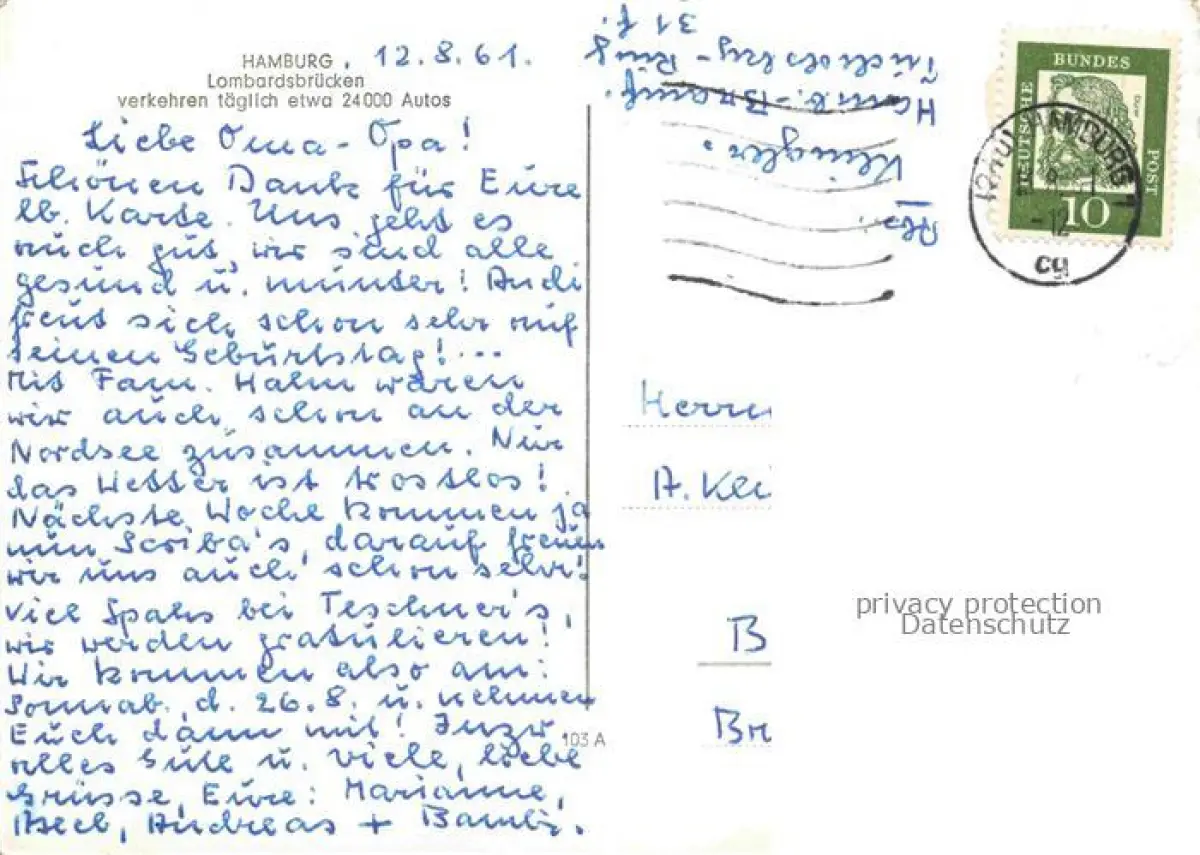 HAMBURG, 12.8.61.
Lombardsbrücken
verkehren täglich etwa 24000 Autos
Liebe Oma - Opa!
Schönen Dank für Eure
lb. Karte. Uns geht es
auch gut, wir sind alle
gesund u. munter! Andi
freut sich schon sehr auf
seinen Geburtstag!...
Mit Fam. Halm waren
wir auch schon an der
Nordsee zusammen. Nur
das Wetter ist trostlos!
Nächste Woche kommen ja
nun Scriba's, darauf freuen
wir uns auch schon sehr!
Viel Spahs bei Teschner's,
wir werden gratulieren!
Wir kommen also am:
Sonnab. d. 26.8. u. nehmen
Euch dann mit! Inzw.
alles Gute u. viele, liebe
Grüsse, Eure: Marianne,
Andreas + Bambi.
103 A
Abs.
Klingler.
Hamb.-Bramf.
Tucholsky-Ring
31 f.
DEUTSCHE BUNDESPOST
Dürer
10
HAMBURG 1
-12
cg
Herrn
A. Kli
B
Br
privacy protection
Datenschutz